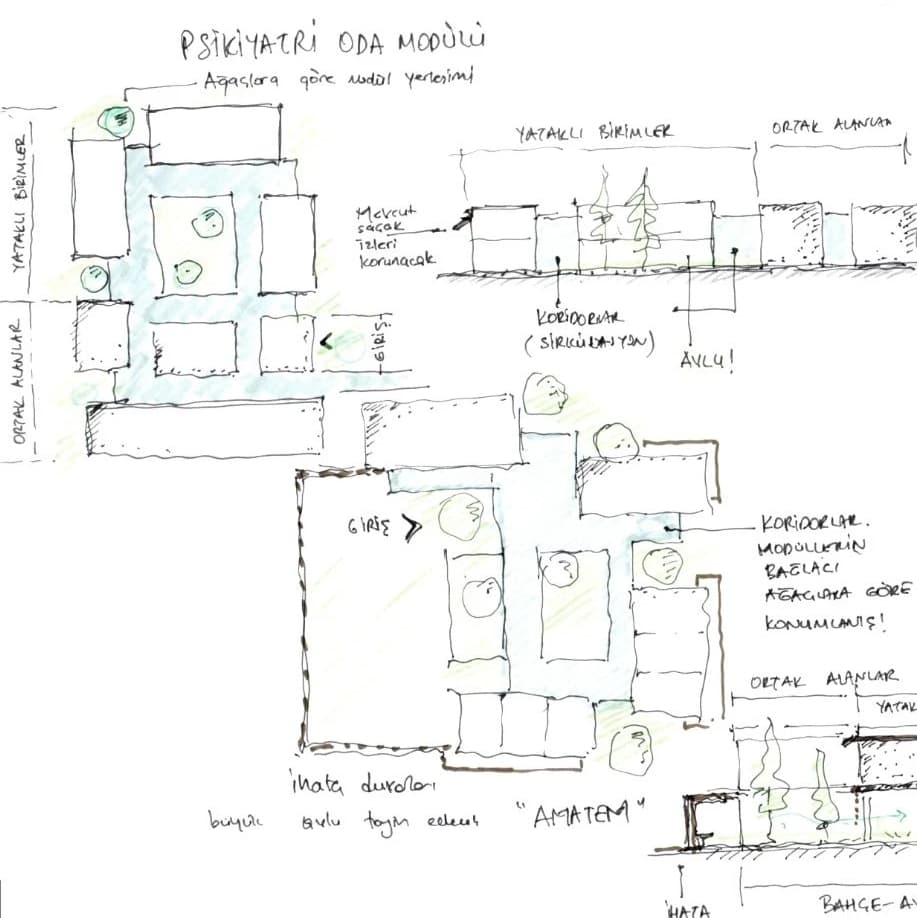 PSİKİYATRİ ODA MODÜLÜ
Ağaçlara göre modül yerleşimi
YATAKLI BİRİMLER
ORTAK ALANLAR
GİRİŞ
YATAKLI BİRİMLER
ORTAK ALANLA
Mevcut
saçak
izleri
korunacak
KORİDORLAR
(SİRKÜLASYON)
AVLU!
GİRİŞ
KORİDORLAR.
MODÜLLERİN
BAĞLACI
AĞAÇLARA GÖRE
KONUMLANIŞ!
ORTAK ALANLAR
YATAK
ihata duvarları
büyük avlu tayin edecek "AMATEM"
İHATA
BAHÇE-AV